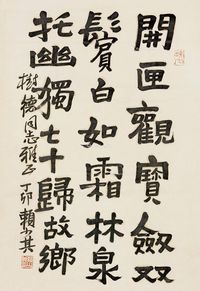 開匣觀寶人斂双
鬂白如霜林泉
托幽獨七十歸故鄉
樹德同志雅正 丁卯 賴少其